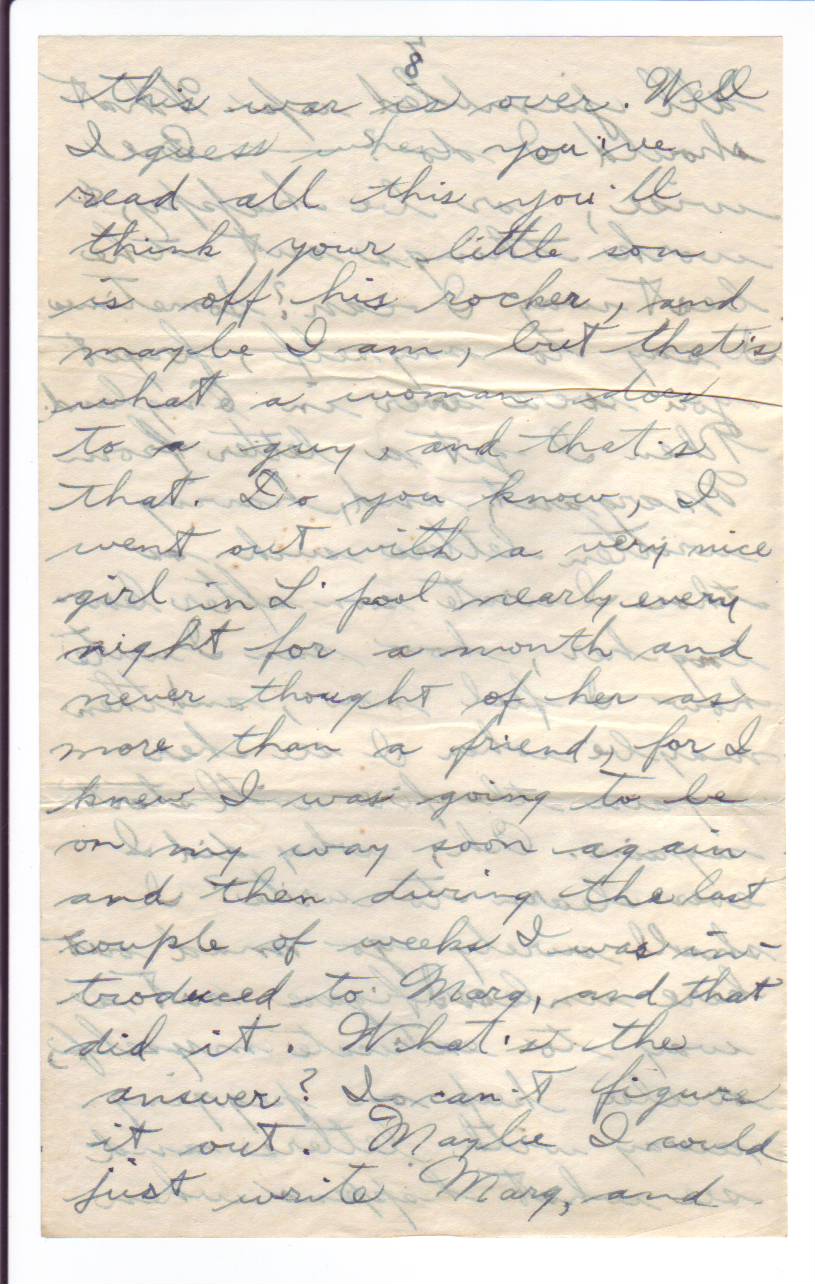 8
this war is over. Well
I guess when you've
read all this you'll
think your little son
is off his rocker, and
maybe I am, but that's
what a woman does
to a guy, and that's
that. Do you know, I
went out with a very nice
girl in L'pool nearly every
night for a month and
never thought of her as
more than a friend, for I
knew I was going to be
on my way soon again
and then during the last
couple of weeks I was in-
troduced to Marg, and that
did it. What's the
answer? I can't figure
it out. Maybe I could
just write Marg, and